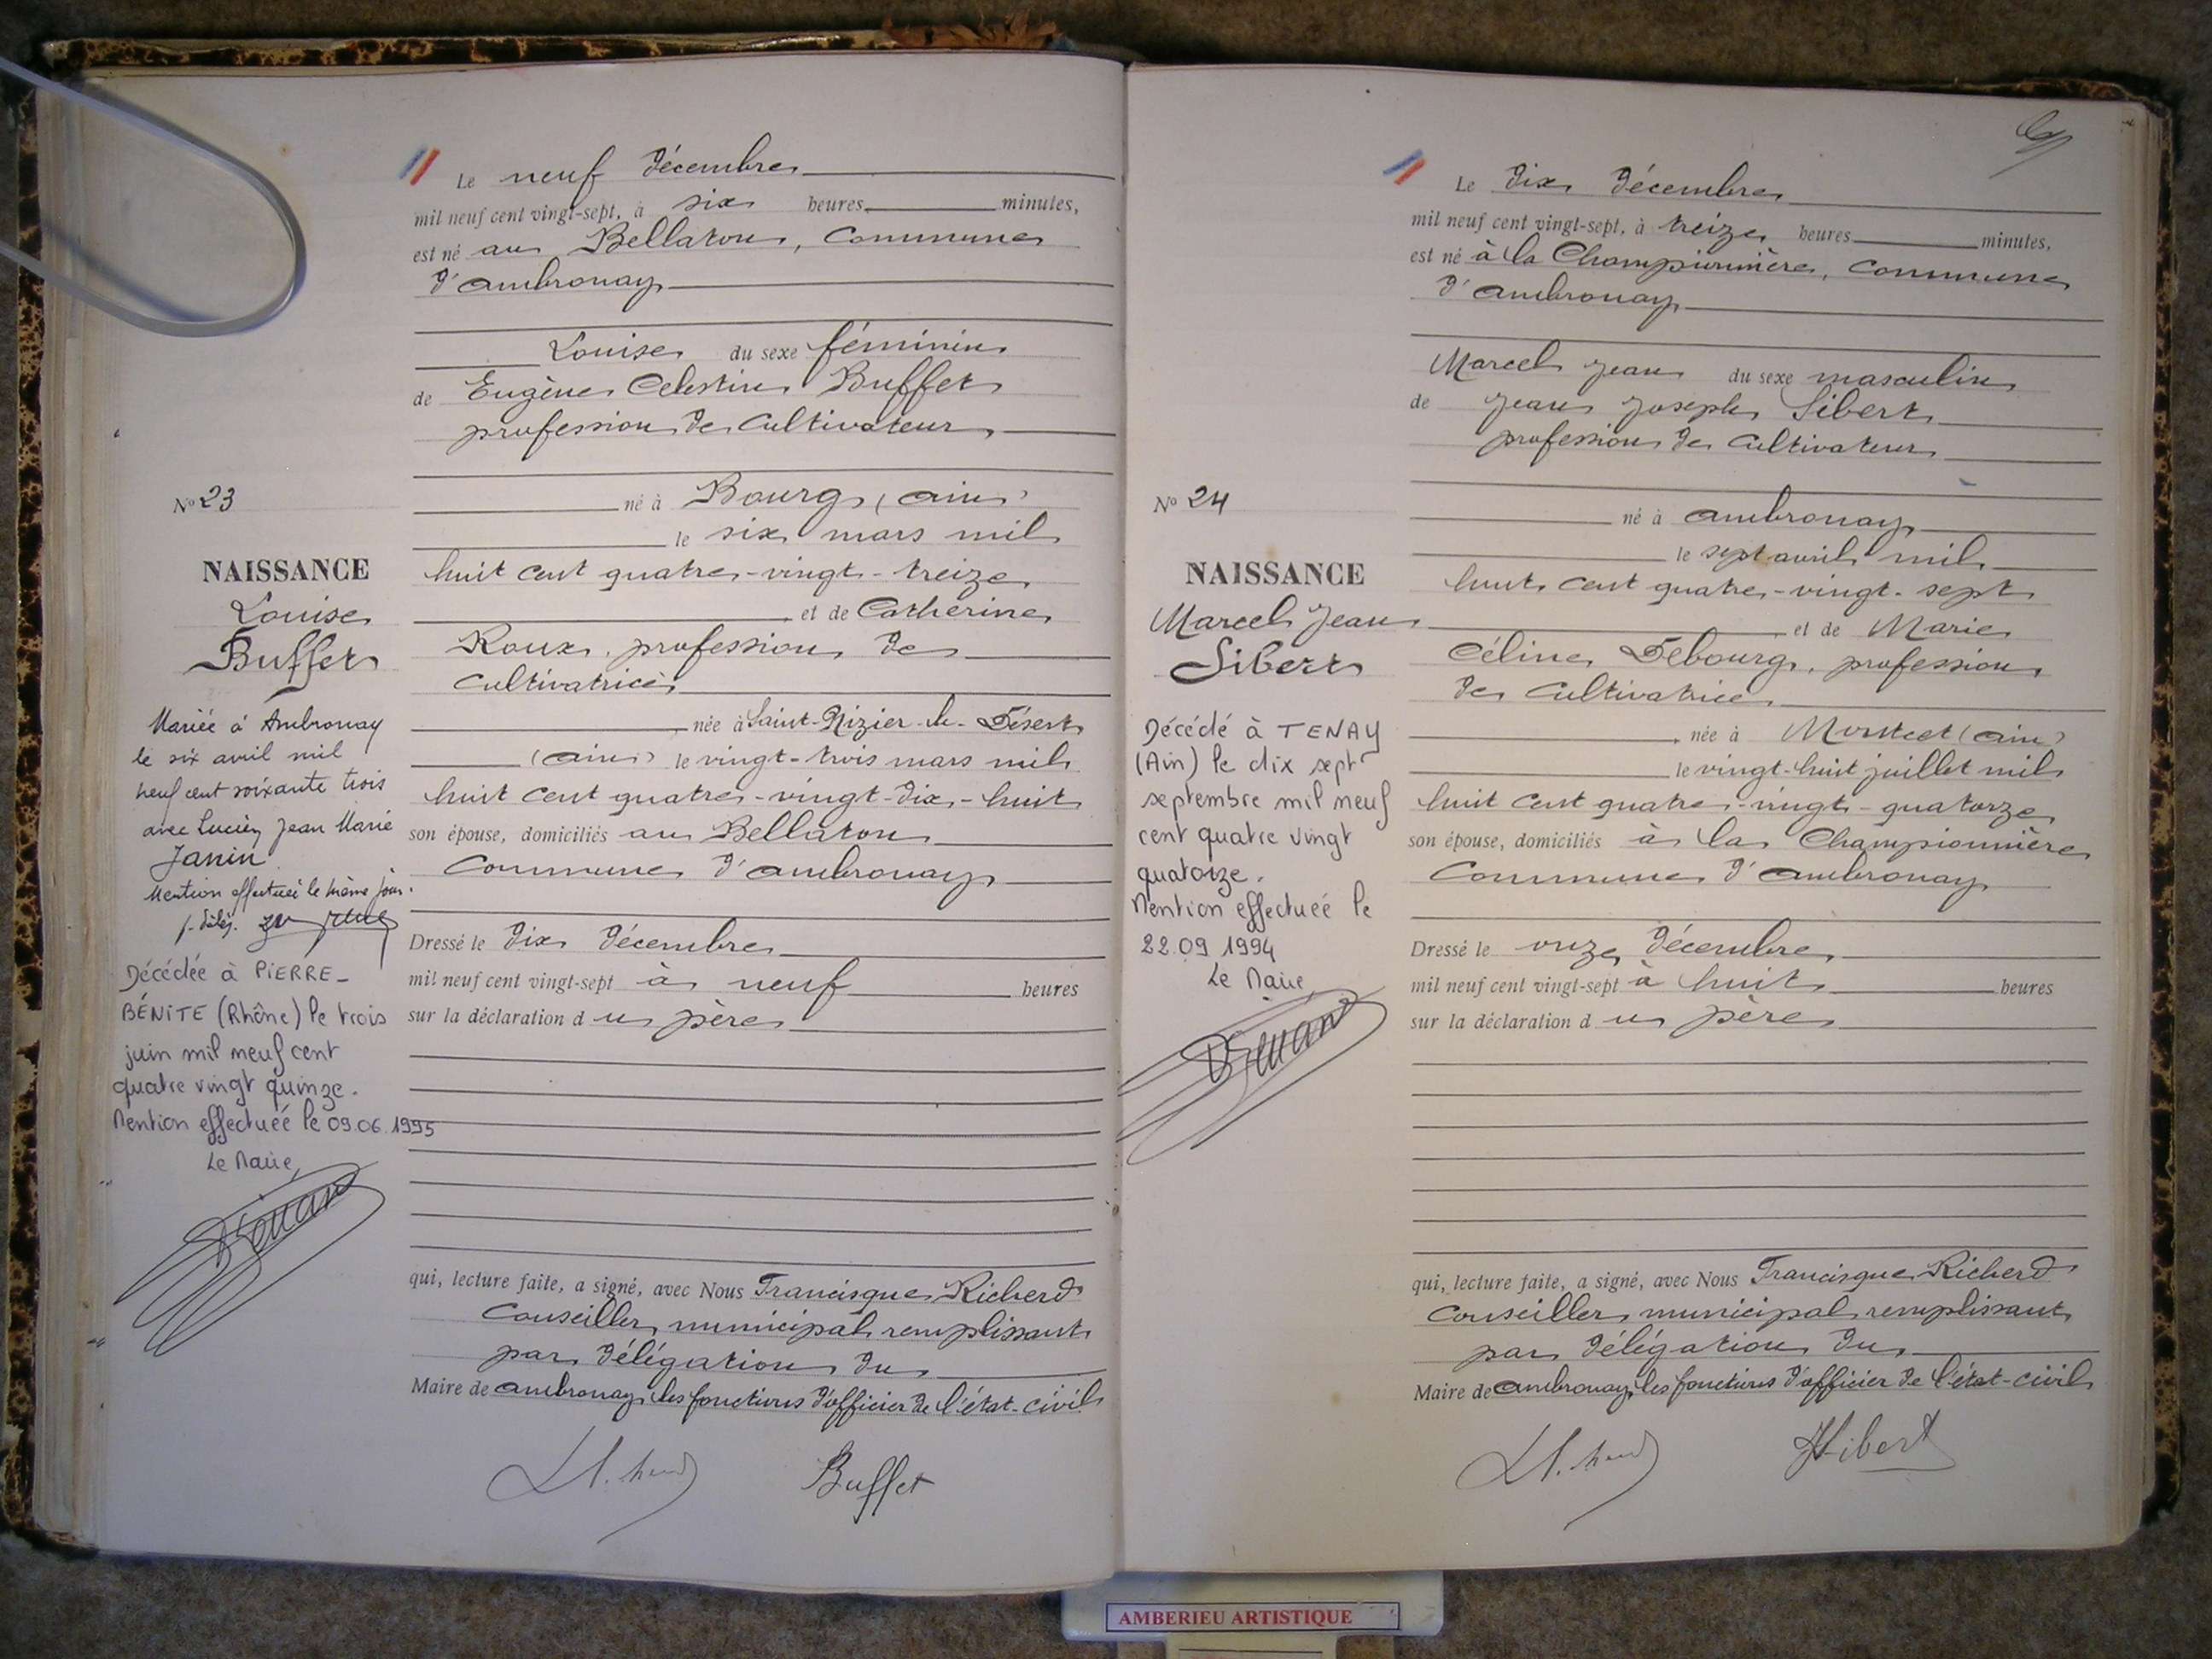 Le neuf décembre
mil neuf cent vingt-sept, à six heures minutes,
est né au Bellaton, Commune
d'Ambronay
Louise du sexe féminin
de Eugène Celestin Buffet
profession de cultivateur
né à Bourg (ain)
le six mars mil
huit cent quatre-vingt-treize
et de Catherine
Roux, profession de
cultivatrice
née à Saint-Nizier-le-Désert
(ain) le vingt-trois mars mil
huit cent quatre-vingt-dix-huit
son épouse, domiciliés au Bellaton
Commune d'Ambronay
Dressé le dix décembre
mil neuf cent vingt-sept à neuf heures
sur la déclaration du père
qui, lecture faite, a signé, avec Nous Francisque Richerd
Conseiller municipal remplissant
par délégation du
Maire de Ambronay, les fonctions d'officier de l'état-civil
Buffet
No 23
NAISSANCE
Louise
Buffet
Mariée à Ambronay
le six avril mil
neuf cent soixante trois
avec Lucien Jean Marie
Janin
Mention effectuée le même jour.
Décédée à PIERRE-
BÉNITE (Rhône) le trois
juin mil neuf cent
quatre vingt quinze.
Mention effectuée le 09.06.1995
Le Maire
Le dix décembre
mil neuf cent vingt-sept, à treize heures minutes,
est né à la Championnière, Commune
d'Ambronay
Marcel Jean du sexe masculin
de Jean Joseph Sibert
profession de cultivateur
né à Ambronay
le sept avril mil
huit cent quatre-vingt-sept
et de Marie
Céline Debourg, profession
de cultivatrice
née à (ain)
le vingt-huit juillet mil
huit cent quatre-vingt-quatorze
son épouse, domiciliés à la Championnière
Commune d'Ambronay
Dressé le onze décembre
mil neuf cent vingt-sept à huit heures
sur la déclaration du père
qui, lecture faite, a signé, avec Nous Francisque Richerd
Conseiller municipal remplissant
par délégation du
Maire de Ambronay, les fonctions d'officier de l'état-civil
Sibert
No 24
NAISSANCE
Marcel Jean
Sibert
Décédé à TENAY
(Ain) le dix sept
septembre mil neuf
cent quatre vingt
quatorze.
Mention effectuée le
22.09.1994
Le Maire
AMBERIEU ARTISTIQUE